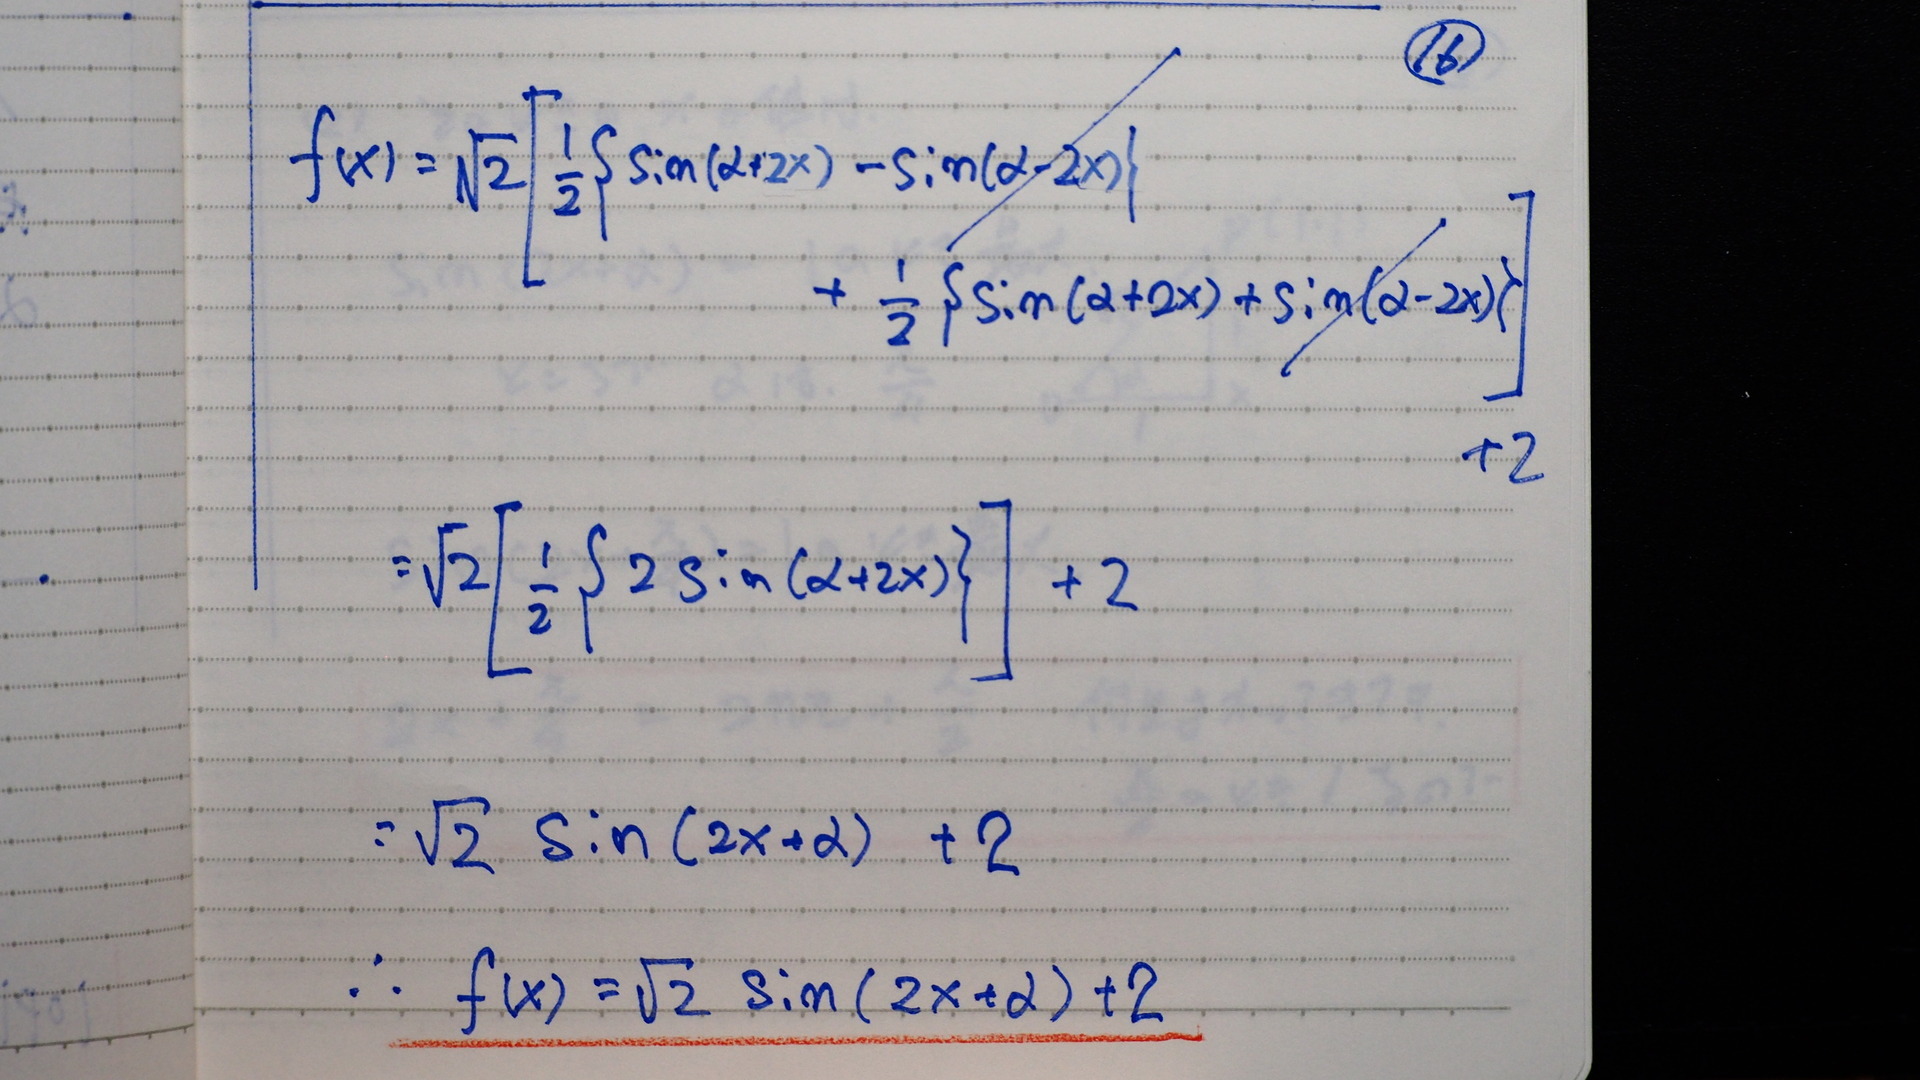 ⑯
f(x) = √2 [ 1/2 { sin(α+2x) - sin(α-2x) }
+ 1/2 { sin(α+2x) + sin(α-2x) } ]
+2
= √2 [ 1/2 { 2 sin(α+2x) } ] + 2
= √2 sin(2x+α) + 2
∴ f(x) = √2 sin(2x+α) + 2